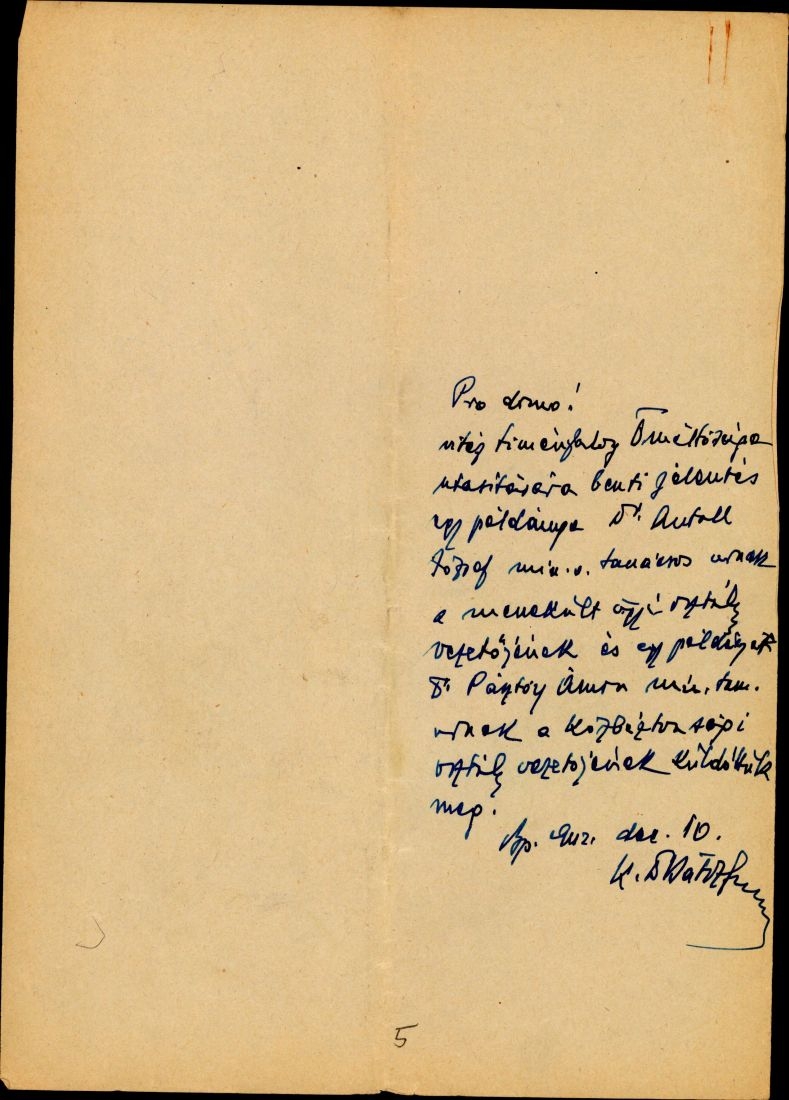 Pro domo!
vitéz Timénfalvy Őméltósága
utasítására benti jelentés
egy példánya Dr. Antall
József min. o. tanácsos urnak
a menekült ügyi osztály
vezetőjének és egy példányát
Dr. Pásztóy Ámon min. tan.
urnak a közbiztonsági
osztály vezetőjének küldöttük
meg.
Bp. dec. 10.
K.
5